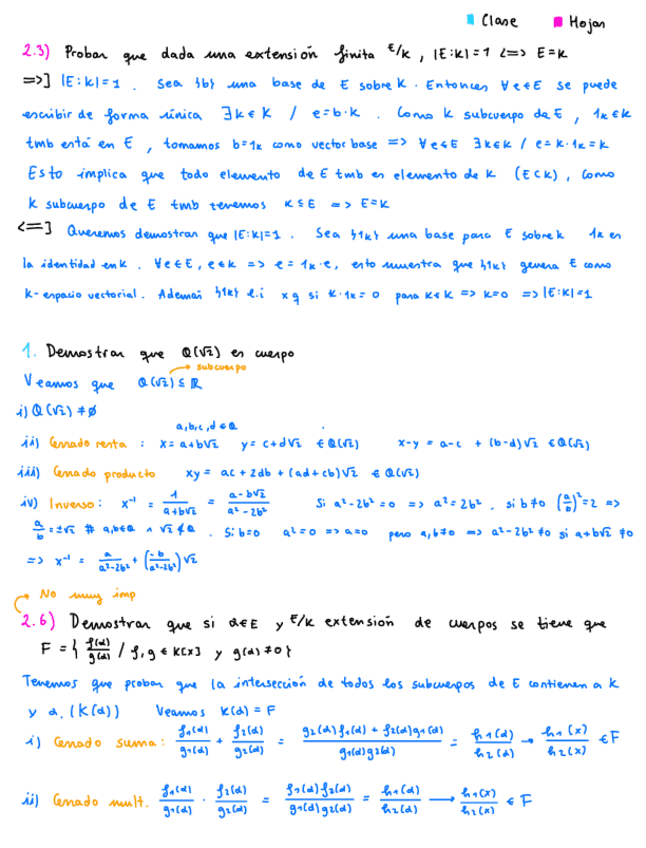 Clase Hojas
2.3) Probar que dada una extensión finita E/K, |E:K|=1 <=> E=K
=>] |E:K|=1. Sea {b} una base de E sobre K. Entonces ∀e∈E se puede
escribir de forma única ∃k∈K / e=b·k. Como K subcuerpo de E, 1ₖ∈K
tmb está en E, tomamos b=1ₖ como vector base => ∀e∈E ∃k∈K / e=k·1ₖ=k
Esto implica que todo elemento de E tmb es elemento de K (E⊂K), como
K subcuerpo de E tmb tenemos K≤E => E=K
<=] Queremos demostrar que |E:K|=1. Sea {1ₖ} una base para E sobre K 1ₖ es
la identidad en K. ∀e∈E, e∈K => e=1ₖ·e, esto muestra que {1ₖ} genera E como
K-espacio vectorial. Además {1ₖ} l.i xq si k·1ₖ=0 para k∈K => k=0 => |E:K|=1
1. Demostrar que Q(√2) es cuerpo
subcuerpo
Veamos que Q(√2) ≤ ℝ
i) Q(√2) ≠ ∅
a,b,c,d ∈ Q
ii) Cerrado resta : x=a+b√2 y=c+d√2 ∈ Q(√2) x-y = a-c + (b-d)√2 ∈ Q(√2)
iii) Cerrado producto xy = ac + 2db + (ad+cb)√2 ∈ Q(√2)
iv) Inverso: x⁻¹ = 1/(a+b√2) = (a-b√2)/(a²-2b²) Si a²-2b²=0 => a²=2b², si b≠0 (a/b)²=2 =>
a/b=±√2 # a,b∈Q ∧ √2∉Q. Si b=0 a²=0 => a=0 pero a,b≠0 => a²-2b²≠0 si a+b√2≠0
=> x⁻¹ = a/(a²-2b²) + (-b/(a²-2b²))√2
No muy imp
2.6) Demostrar que si α∈E y E/K extensión de cuerpos se tiene que
F = { f(α)/g(α) / f,g ∈ K[x] y g(α)≠0 }
Tenemos que probar que la intersección de todos los subcuerpos de E contienen a K
y α, (K(α)) Veamos K(α) = F
i) Cerrado suma: f₁(α)/g₁(α) + f₂(α)/g₂(α) = (g₂(α)f₁(α) + f₂(α)g₁(α))/(g₁(α)g₂(α)) = h₁(α)/h₂(α) → h₁(x)/h₂(x) ∈ F
ii) Cerrado mult. f₁(α)/g₁(α) · f₂(α)/g₂(α) = f₁(α)f₂(α)/(g₁(α)g₂(α)) = h₁(α)/h₂(α) → h₁(x)/h₂(x) ∈ F